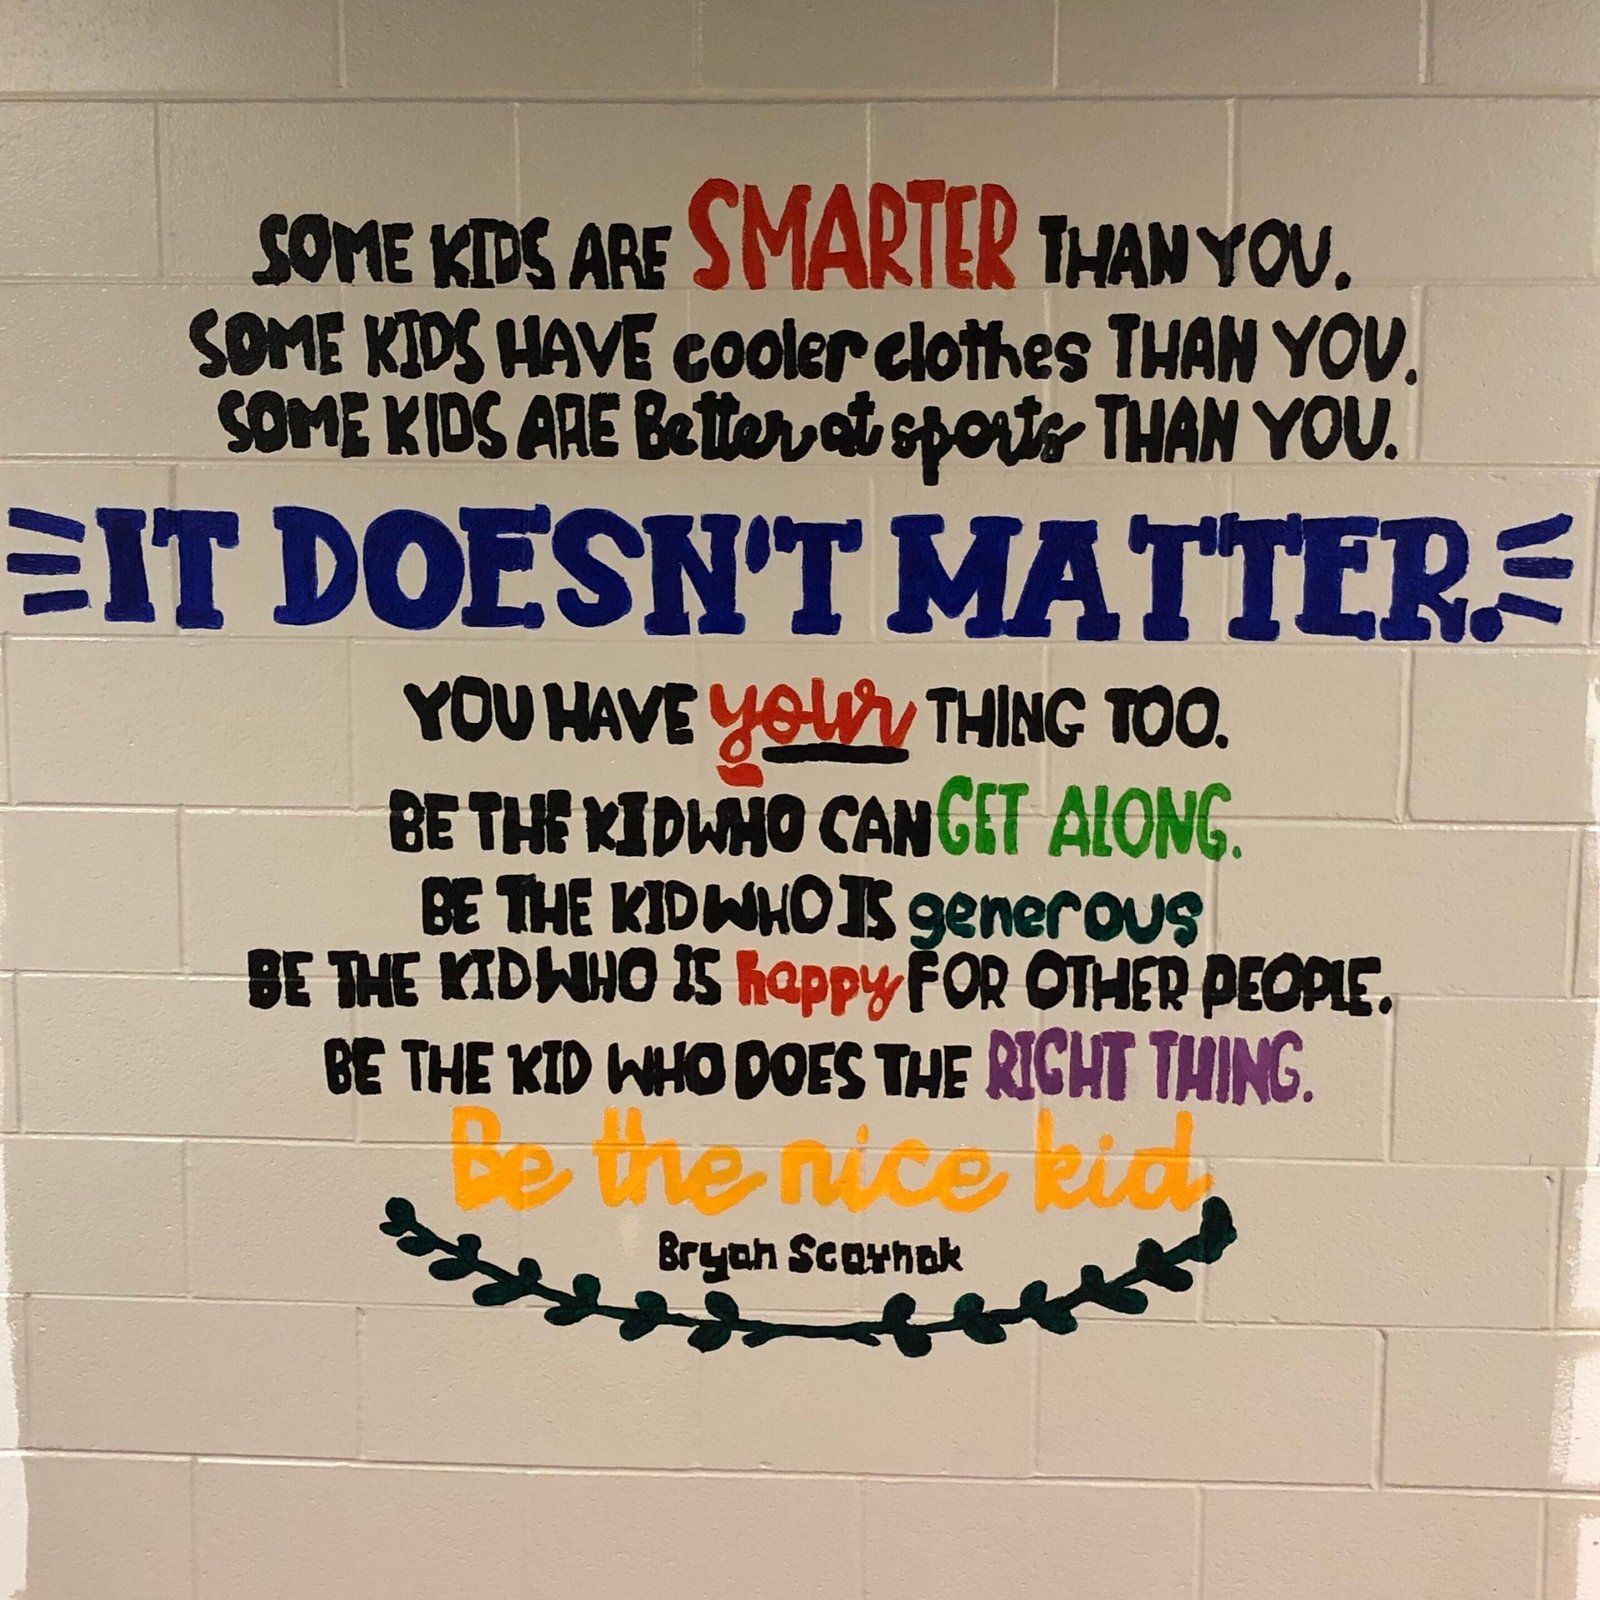 SOME KIDS ARE SMARTER THAN YOU.
SOME KIDS HAVE cooler clothes THAN YOU.
SOME KIDS ARE Better at sports THAN YOU.
IT DOESN'T MATTER.
YOU HAVE your THING TOO.
BE THE KID WHO CAN GET ALONG.
BE THE KID WHO IS generous
BE THE KID WHO IS happy FOR OTHER PEOPLE.
BE THE KID WHO DOES THE RIGHT THING.
Be the nice kid
Bryan Scavnak